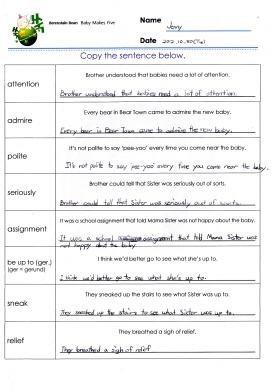 Berenstain Bears Baby Makes Five
Name
Jerry
Date 2012.10.30(Tu)
Copy the sentence below.
attention
Brother understood that babies need a lot of attention.
Brother understood that babies need a lot of attention.
admire
Every bear in Bear Town came to admire the new baby.
Every bear in Bear Town came to admire the new baby.
polite
It's not polite to say 'pee-yoo' every time you come near the baby.
It's not polite to say 'pee-yoo' every time you come near the baby.
seriously
Brother could tell that Sister was seriously out of sorts.
Brother could tell that Sister was seriously out of sorts.
assignment
It was a school assignment that told Mama Sister was not happy about the baby.
It was a school assignment that told Mama Sister was
not happy about the baby
be up to (ger.)
(ger = gerund)
I think we'd better go to see what she's up to.
I think we'd better go to see what she's up to.
sneak
They sneaked up the stairs to see what Sister was up to.
They sneaked up the stairs to see what Sister was up to.
relief
They breathed a sigh of relief.
They breathed a sigh of relief